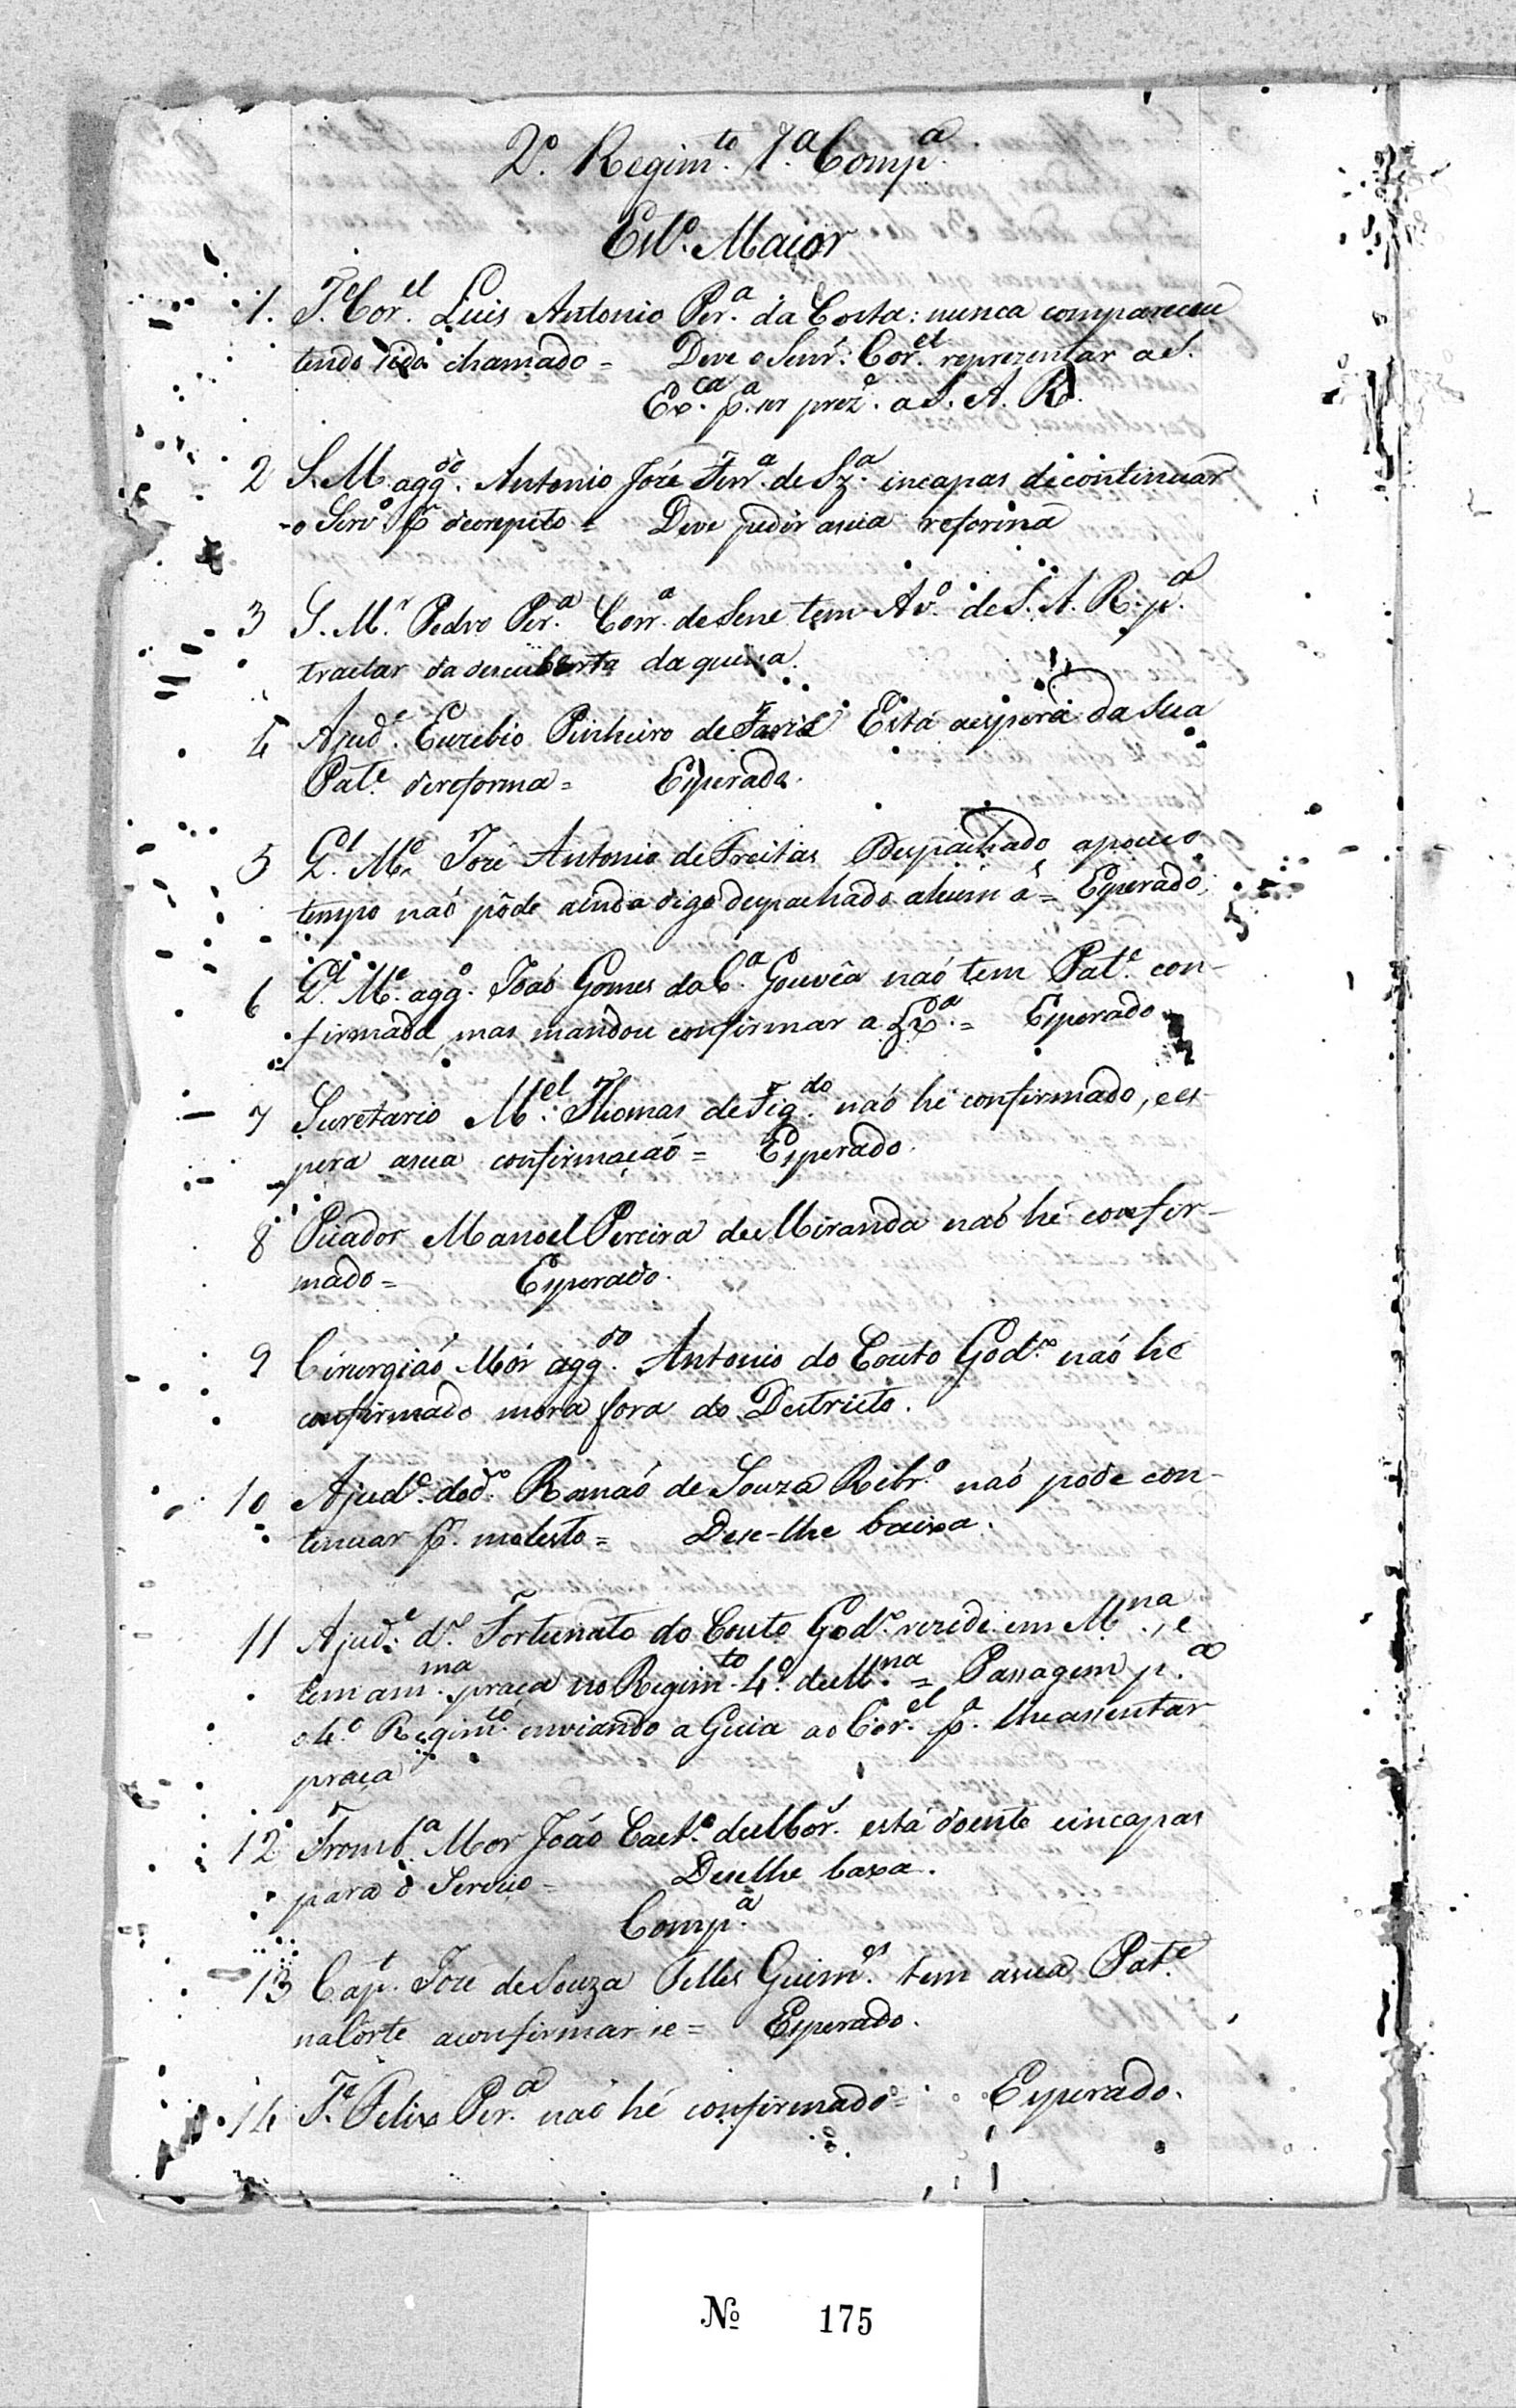 2.º Regim.to 1.ª Comp.ª
Est.º Maior
1. T.e Cor.el Luis Antonio Per.ª da Costa: nunca compareceu
tendo sido chamado = Deve o Senr. Cor.el reprezentar a S.
Ex.ca p.ª ser prez.e a S. A. R.
2 S. M. agg.do Antonio José Ferr.ª de Sz.ª incapas de continuar
o Serv.º p.r decrepito = Deve pedir a sua reforma
3 S. M.r Pedro Per.ª Corr.ª de Sene tem Av.º de S. A. R. p.ª
tractar da descuberta da quina.
4 Ajud.e Euzebio Pinheiro de Faria Está a espera da Sua
Pat.e de reforma = Esperado.
5 Q.el M.e José Antonio de Freitas Despachado a pouco
tempo naó pôde ainda digo despachado a hum a.º = Esperado.
6 Q.el M.e agg.º Joaó Gomes da C.ª Gouvêa naó tem Pat.e con-
firmada, mas mandou confirmar a = Esperado
7 Secretario M.el Thomas de Fig.do naó he confirmado, e es-
pera a sua confirmaçaó = Esperado.
8 Picador Manoel Pereira de Miranda naó hé confir-
mado = Esperado.
9 Cirurgiaó Mór agg.do Antonio do Couto God.º naó he
confirmado mora fora do Destricto.
10 Ajud.e do d.º Ramaó de Souza Ribr.º naó pode con-
tinuar p.r molesto = Dese-lhe baixa.
11 Ajud.e d.º Fortunato do Couto God.º rezide em M.na, e
tem a m.ma praça no Regim.to 4.º de M.na = Passagem p.ª
o 4.º Regim.to enviando a Guia ao Cor.el p.ª lhe assentar
praça
12 Tromb.ª Mor Joáo Caet.º de Mor.s está doente e incapas
para o Serviço = Deselhe baxa.
Comp.ª
13 Cap.t José de Souza Telles Guim.es tem a sua Pat.e
na Côrte a confirmar se = Esperado.
14 T.e Felix Per.ª naó hé confirmado = Esperado.
Nº 175